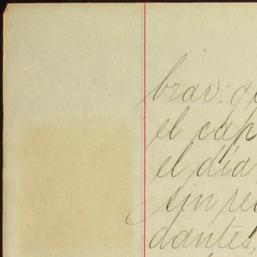 brav: de
el cap
el día
sin re
dantes,